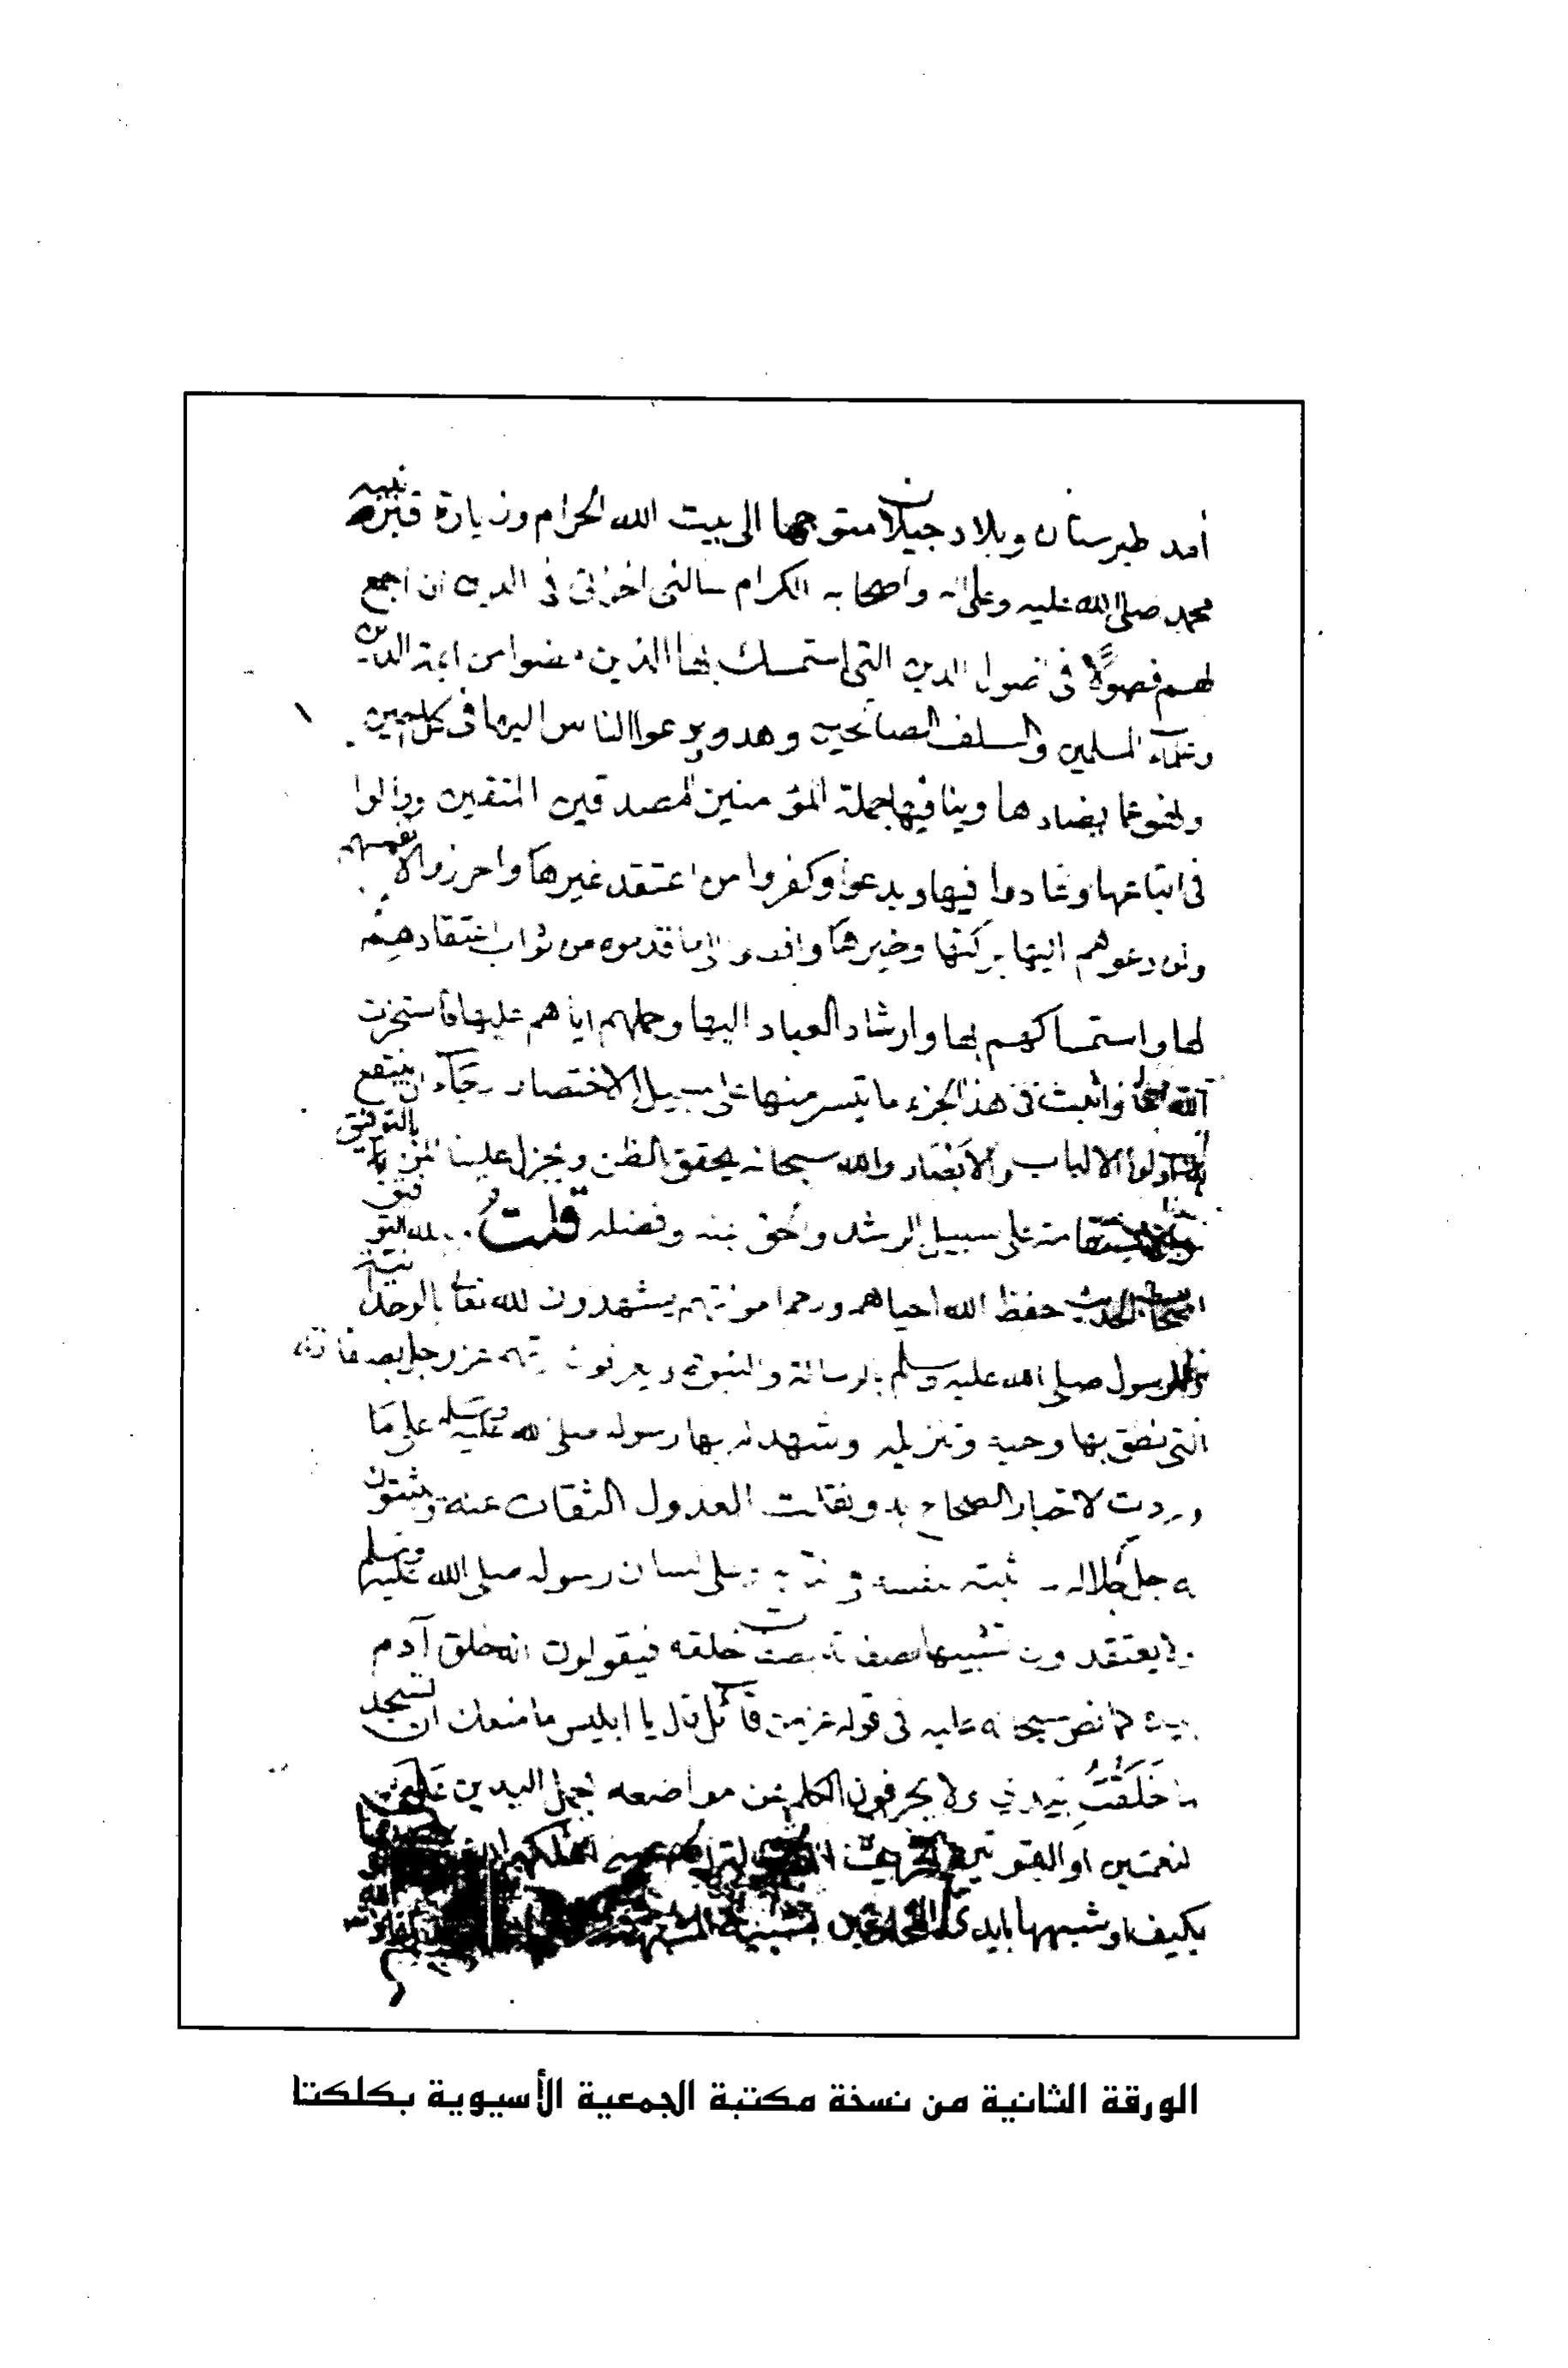 آمد طبرستان وبلاد جيلان متوجها الى بيت الله الحرام وزيارة قبر نبيه
محمد صلى الله عليه وعلى اله واصحابه الكرام سالنى اخوانى فى الدين ان اجمع
لهم فصولا فى اصول الدين التى استمسك بها الذين مضوا من ائمة الدين
وعلماء المسلمين والسلف الصالحين وهدوا ودعوا الناس اليها فى كل حين
ونهوا عما يضادها وينافيها جملة المؤمنين المصدقين المتقين ووالوا
فى اتباعها وعادوا فيها وبدعوا وكفروا من اعتقد غيرها واحرزوا لانفسهم
ولمن دعوهم اليها بركتها وخيرها وافضوا الى ما قدموه من ثواب اعتقادهم
لها واستمساكهم بها وارشاد العباد اليها وحملهم اياهم عليها فاستخرت
الله تعالى واثبت فى هذا الجزء ما تيسر منها على سبيل الاختصار رجاء ان ينتفع
به اولوا الالباب والابصار والله سبحانه يحقق الظن ويجزل علينا المن بالتوفيق
والاستقامة على سبيل الرشد والحق بمنه وفضله قلت وبالله التوفيق
اصحاب الحديث حفظ الله احياهم ورحم امواتهم يشهدون لله تعالى بالوحدانية
وللرسول صلى الله عليه وسلم بالرسالة والنبوة ويعرفون ربهم عز وجل بصفاته
التى نطق بها وحيه وتنزيله وشهد له بها رسوله صلى الله عليه وسلم على ما
وردت الاخبار الصحاح به ونقلت العدول الثقات عنه ويثبتون
له جل جلاله ما اثبته لنفسه فى كتابه وعلى لسان رسوله صلى الله عليه وسلم
ولا يعتقدون تشبيها لصفاته بصفات خلقه فيقولون انه خلق آدم
بيده كما نص سبحانه عليه فى قوله عز من قائل قال يا ابليس ما منعك ان تسجد
لما خَلَقْتُ بِيَدي ولا يحرفون الكلم عن مواضعه بحمل اليدين على
النعمتين او القوتين تحريف
بكيف او شبهها بايدى المخلوقين تشبيه المشبهة
الورقة الثانية من نسخة مكتبة الجمعية الأسيوية بكلكتا